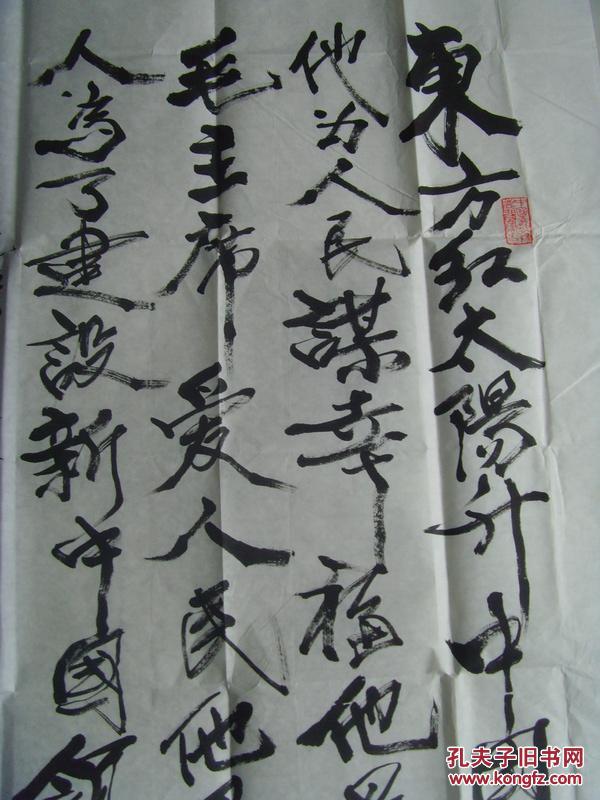 東方红太陽升中国
他为人民謀幸福他是
毛主席爱人民他是
人為了建設新中國領
孔夫子旧书网
www.kongfz.com